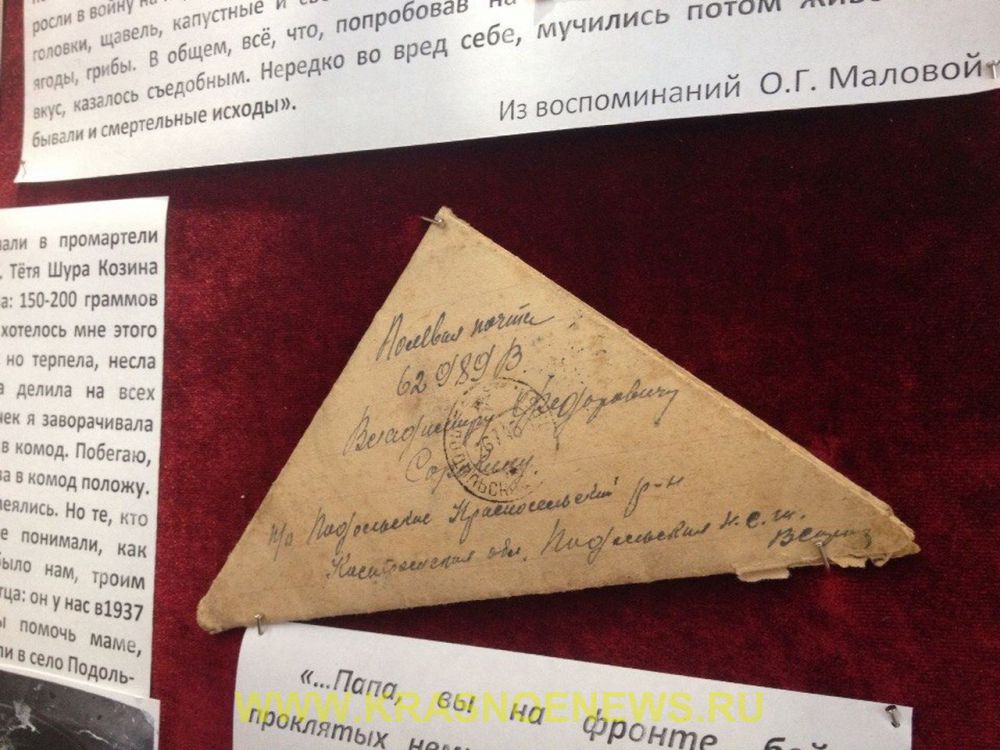 росли в войну на
головки, щавель, капустные и
ягоды, грибы. В общем, всё, что, попробовав на
вкус, казалось съедобным. Нередко во вред себе, мучились потом
бывали и смертельные исходы».
Из воспоминаний О.Г. Маловой
али в промартели
Тётя Шура Козина
а: 150-200 граммов
хотелось мне этого
но терпела, несла
а делила на всех
чек я заворачивала
в комод. Побегаю,
за в комод положу.
меялись. Но те, кто
е понимали, как
было нам, троим
тца: он у нас в1937
ы помочь маме,
ли в село Подоль-
Полевая почта
62989 В
Владимиру Федоровичу
Сорокину.
п/о Подольское Красносельский р-н
Костромская обл. Подольская н.с.ш.
«...Папа, вы на фронте
проклятых
WWW.KRASNOENEWS.RU